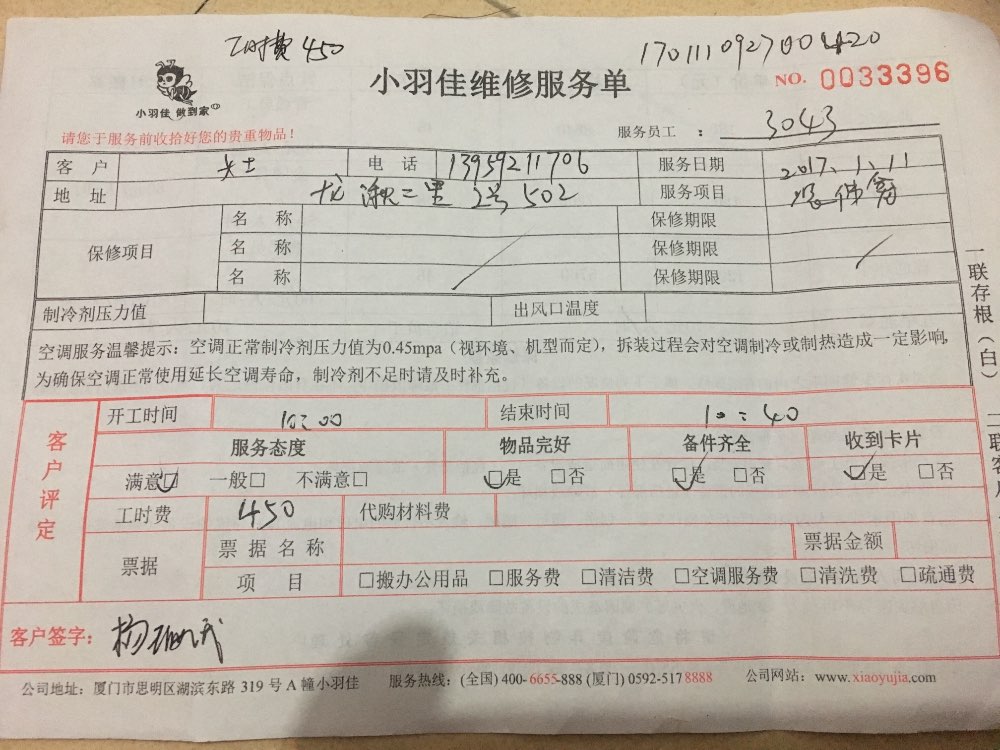 工时费 450
170111092700420
小羽佳 做到家
小羽佳维修服务单
NO. 0033396
请您于服务前收拾好您的贵重物品!
服务员工 : 3043
客 户 电 话 13959211706 服务日期 2017、1、11
地 址 龙湫二里 2号502 服务项目
保修项目 名 称 保修期限
名 称 保修期限
名 称 保修期限
制冷剂压力值 出风口温度
空调服务温馨提示:空调正常制冷剂压力值为0.45mpa(视环境、机型而定),拆装过程会对空调制冷或制热造成一定影响,
为确保空调正常使用延长空调寿命,制冷剂不足时请及时补充。
一联存根(白)
二联客户
客户评定
开工时间 10:00 结束时间 10:40
服务态度 物品完好 备件齐全 收到卡片
满意□ 一般□ 不满意□ □是 □否 □是 □否 □是 □否
工时费 450 代购材料费
票据 票据名称 票据金额
项 目 □搬办公用品 □服务费 □清洁费 □空调服务费 □清洗费 □疏通费
客户签字:
公司地址:厦门市思明区湖滨东路 319 号 A 幢小羽佳 服务热线:(全国) 400-6655-888 (厦门) 0592-5178888 公司网站:www.xiaoyujia.com